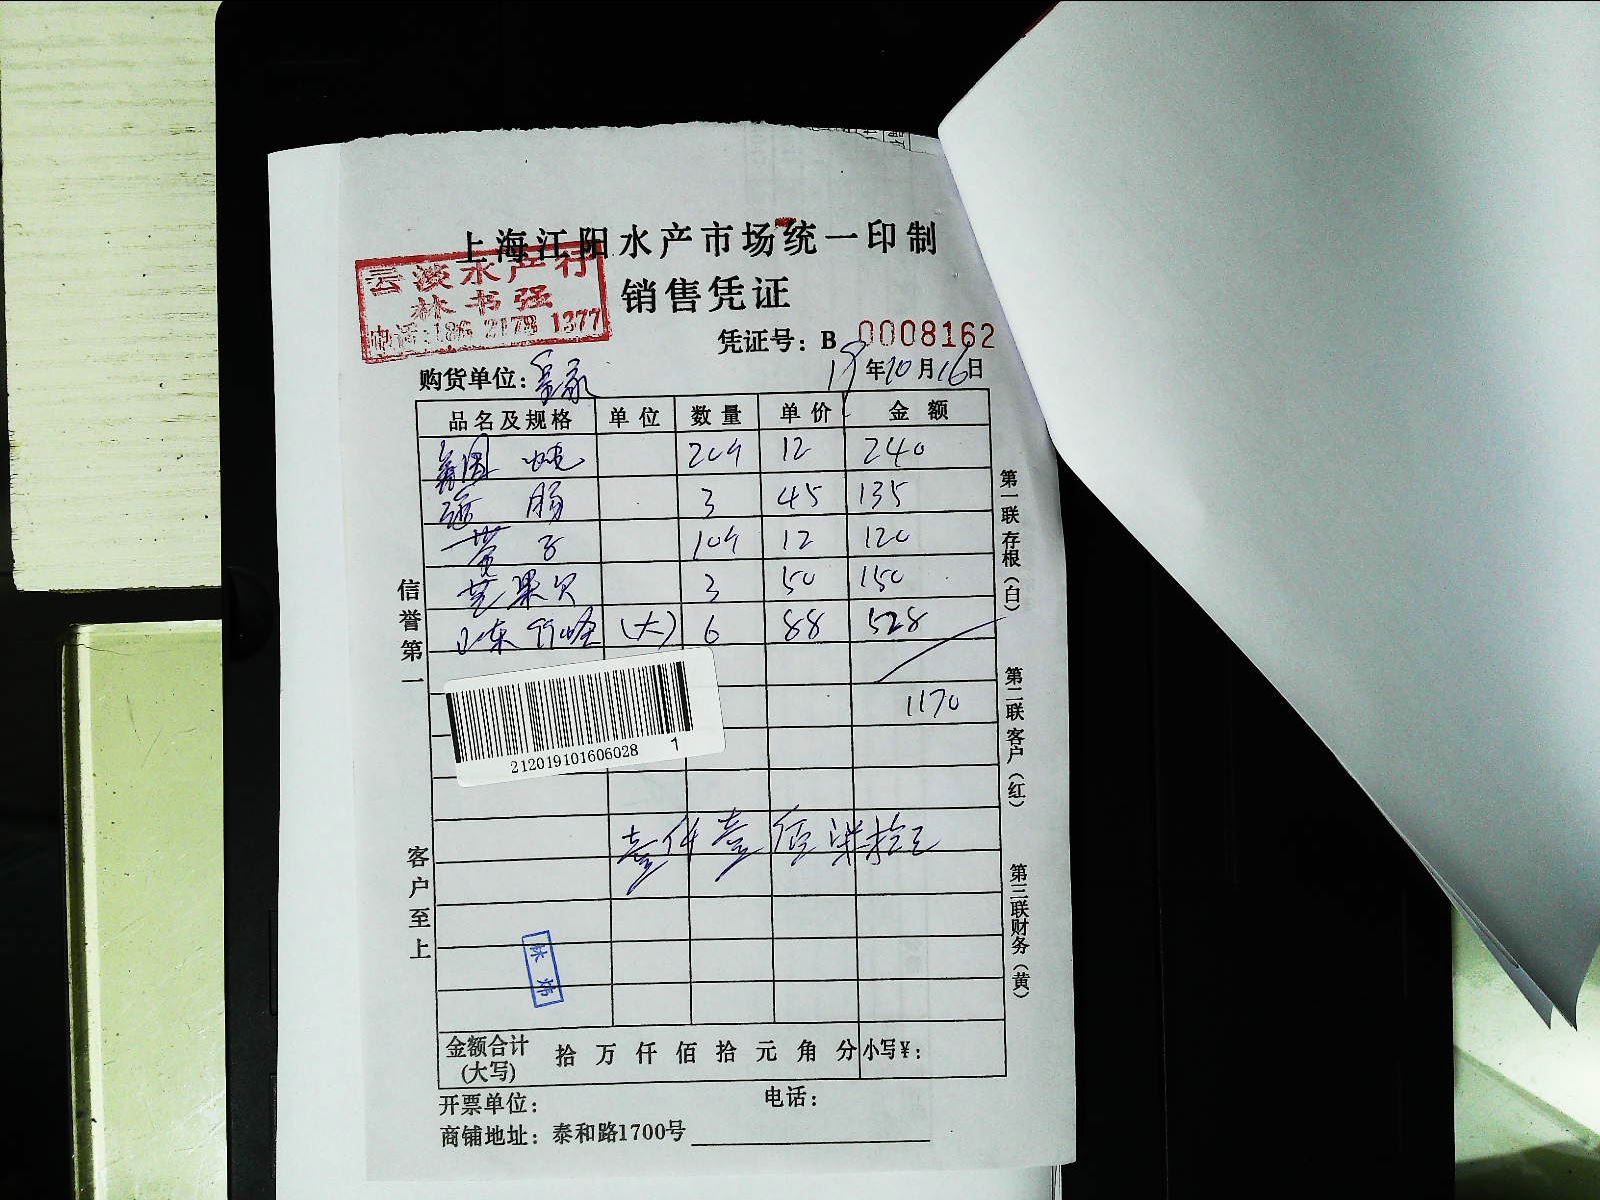 上海江阳水产市场统一印制
云淡水产行
林书强
电话:186 2178 1377
销售凭证
凭证号：B 0008162
购货单位：
19年10月16日
品名及规格 单位 数量 单价 金额
12 240
肠 3 45 135
子 12 120
芒果贝 3 50 150
山东 (大) 6 88 528
1170
212019101606028 1
壹仟壹佰柒拾元
金额合计(大写) 拾 万 仟 佰 拾 元 角 分 小写￥：
开票单位： 电话：
商铺地址：泰和路1700号
信誉第一
客户至上
第一联 存根（白）
第二联 客户（红）
第三联 财务（黄）